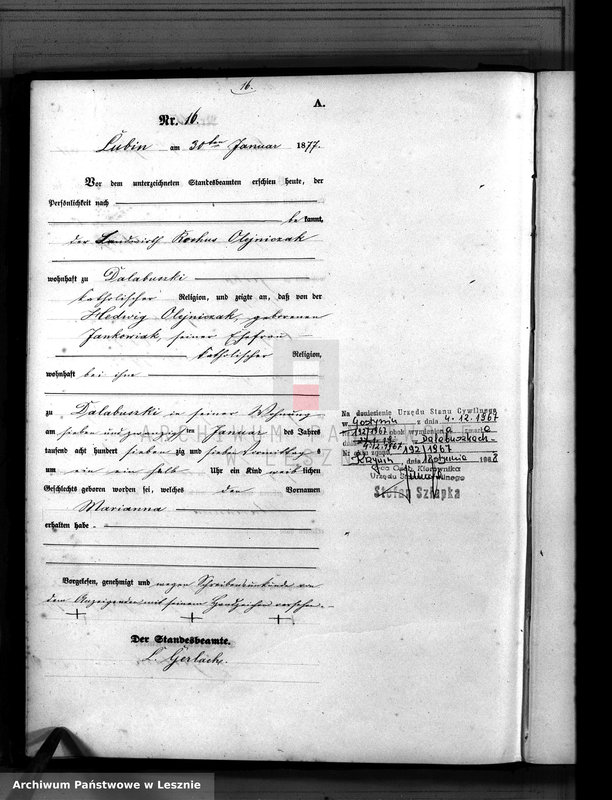 16.
A.
Nr. 16.
Lubin am 30ten Januar 1877.
Vor dem unterzeichneten Standesbeamten erschien heute, der
Persönlichkeit nach
be kannt,
der Landwirth Rochus Olejniczak
wohnhaft zu Dalabuszki
katholischer Religion, und zeigte an, daß von der
Hedwig Olejniczak, geborenen
Jankowiak, seiner Ehefrau
katholischer Religion,
wohnhaft bei ihm
zu Dalabuszki in seiner Wohnung
am sieben und zwanzigsten Januar des Jahres
tausend acht hundert sieben zig und sieben Vormittags
um ein ein halb Uhr ein Kind weib lichen
Geschlechts geboren worden sei, welches den Vornamen
Marianna
erhalten habe.
Vorgelesen, genehmigt und wegen Schreibensunkunde von
dem Anzeigenden mit seinem Handzeichen versehen.
+ + +
Der Standesbeamte.
L. Gerlach.
Na doniesienie Urzędu Stanu Cywilnego
w Gostyniu z dnia 4.12.1967
192/1967 obok wymieniona
Dalabuszkach
4.12.1967 192/1967
dnia 1968
Urzędu Stanu Cywilnego
Stefan Szłapka
ARCHIWUM PAŃSTWOWE
W LESZNIE
Archiwum Państwowe w Lesznie